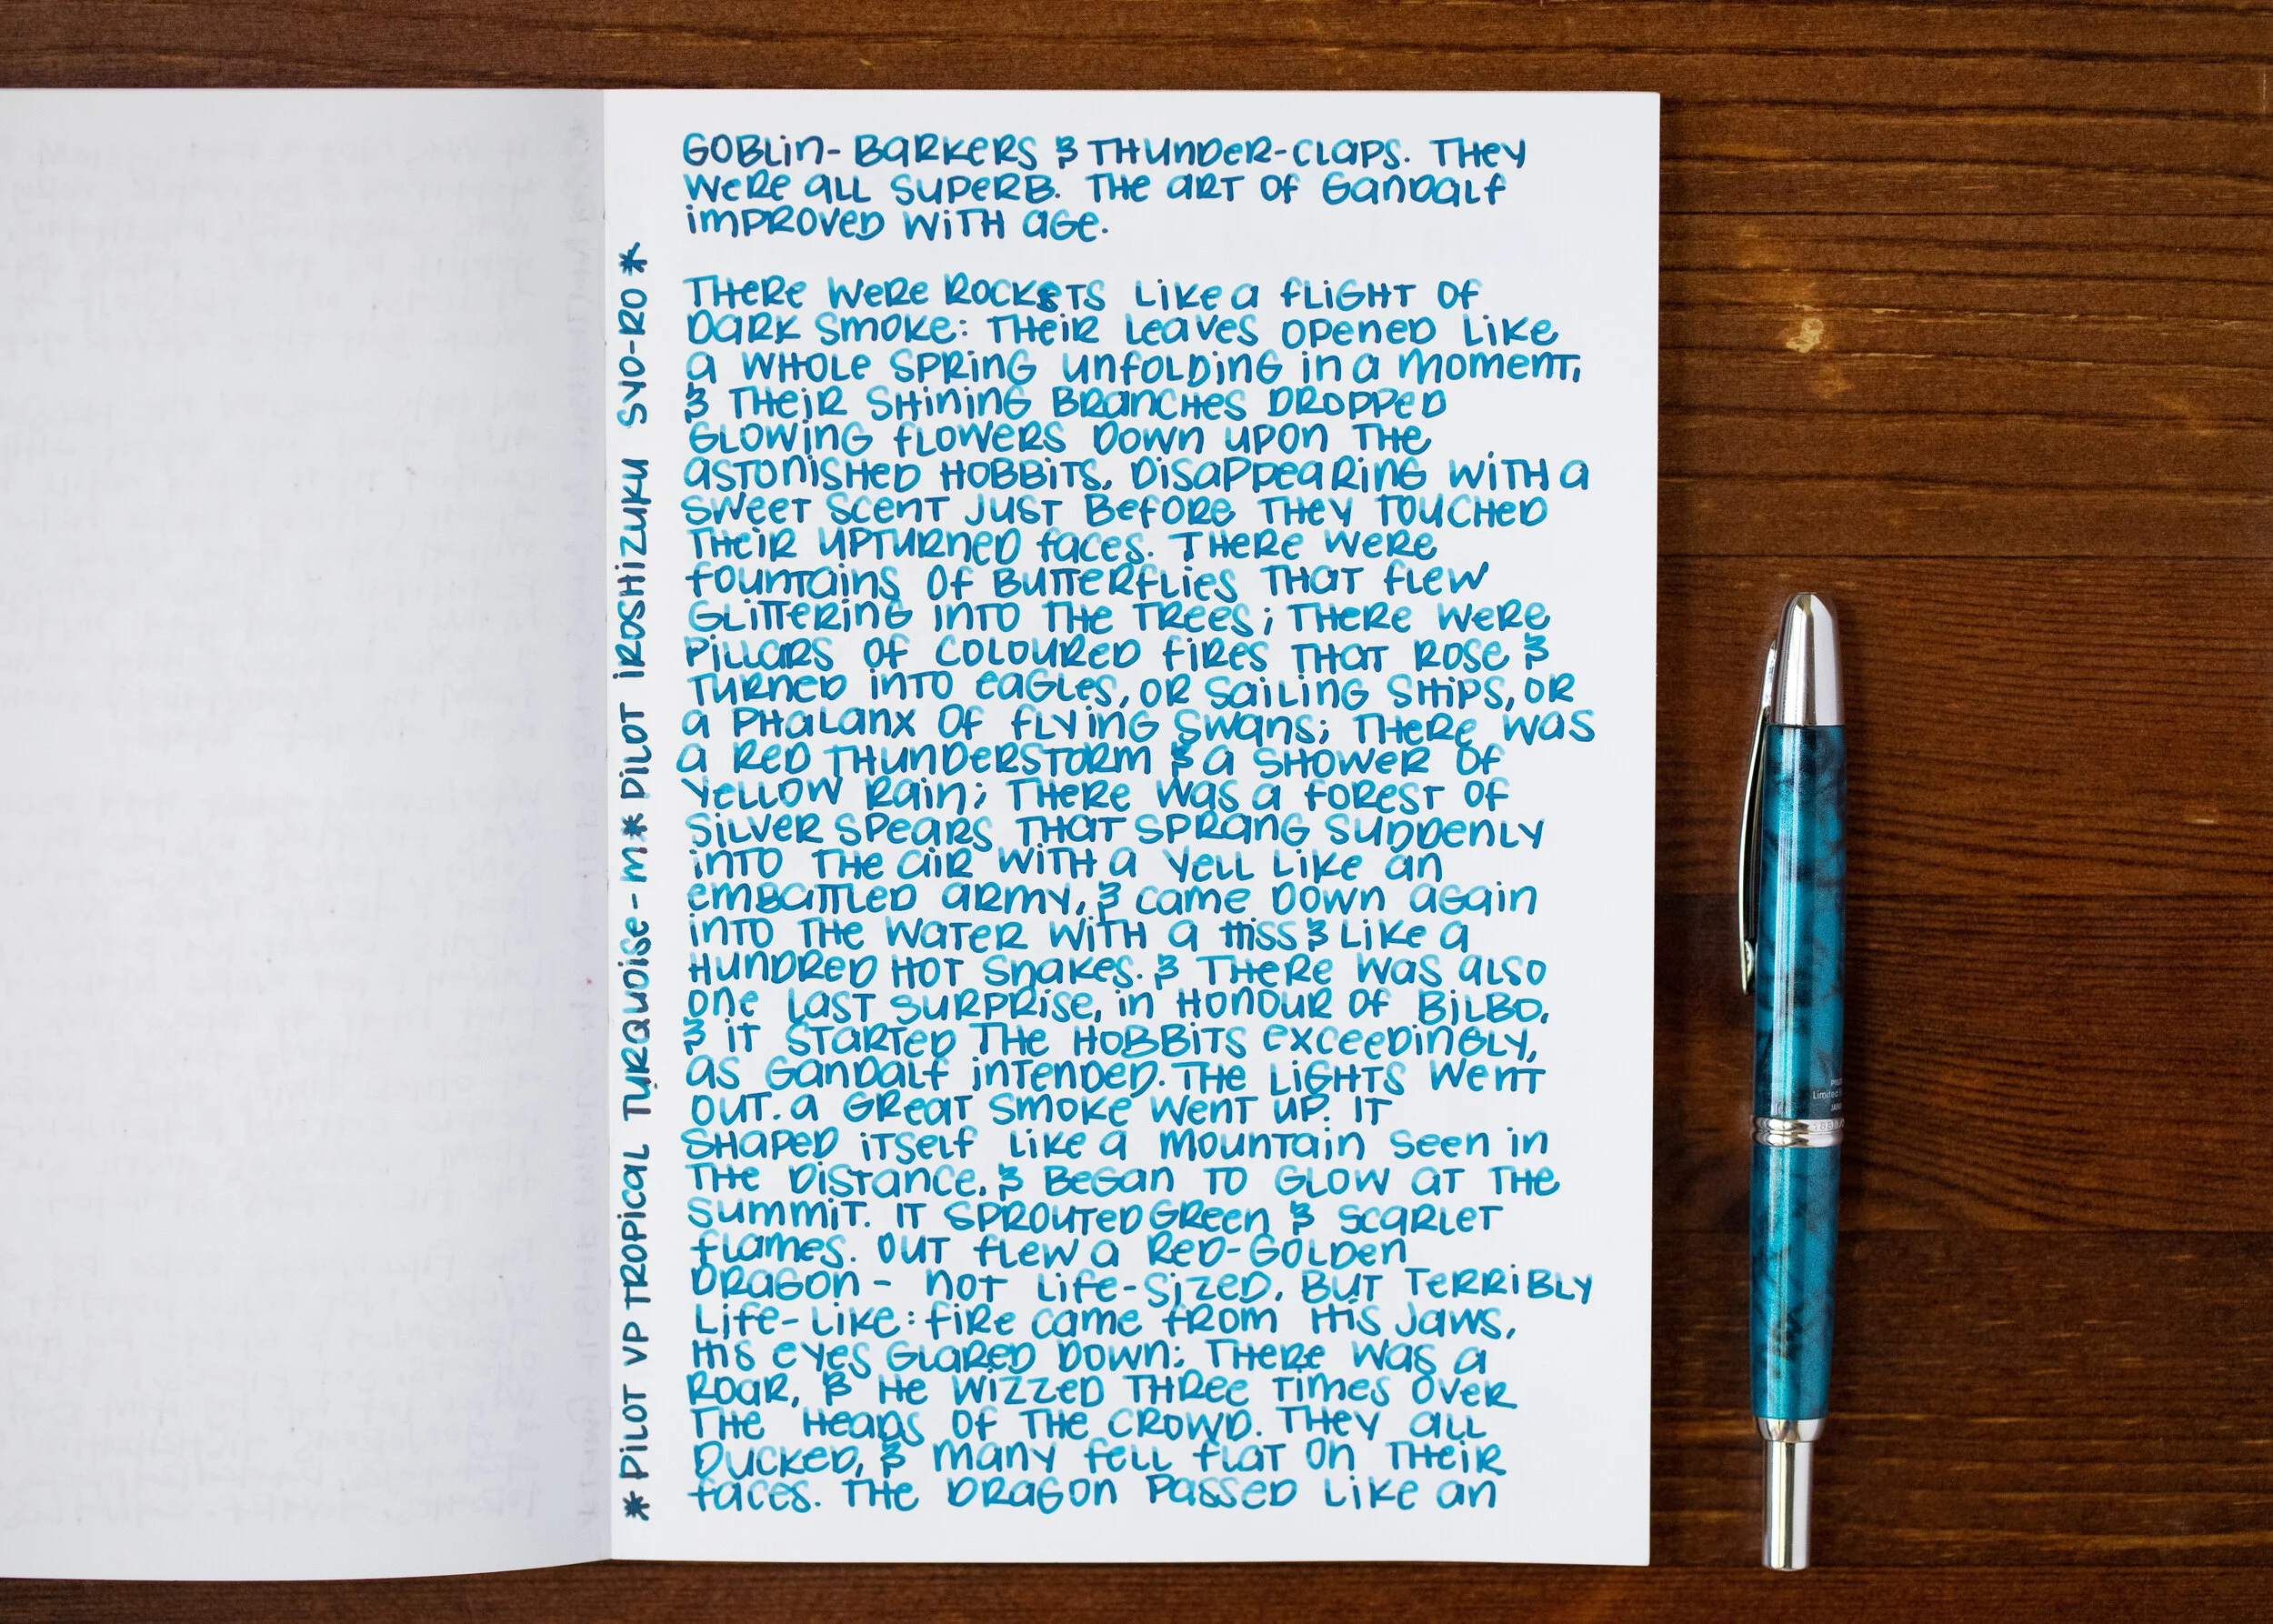 GOBLIN-BARKERS & THUNDER-CLAPS. THEY
WERE ALL SUPERB. THE ART OF GANDALF
IMPROVED WITH AGE.
THERE WERE ROCKETS LIKE A FLIGHT OF
DARK SMOKE: THEIR LEAVES OPENED LIKE
A WHOLE SPRING UNFOLDING IN A MOMENT,
& THEIR SHINING BRANCHES DROPPED
GLOWING FLOWERS DOWN UPON THE
ASTONISHED HOBBITS, DISAPPEARING WITH A
SWEET SCENT JUST BEFORE THEY TOUCHED
THEIR UPTURNED FACES. THERE WERE
FOUNTAINS OF BUTTERFLIES THAT FLEW
GLITTERING INTO THE TREES; THERE WERE
PILLARS OF COLOURED FIRES THAT ROSE &
TURNED INTO EAGLES, OR SAILING SHIPS, OR
A PHALANX OF FLYING SWANS; THERE WAS
A RED THUNDERSTORM & A SHOWER OF
YELLOW RAIN; THERE WAS A FOREST OF
SILVER SPEARS THAT SPRANG SUDDENLY
INTO THE AIR WITH A YELL LIKE AN
EMBATTLED ARMY, & CAME DOWN AGAIN
INTO THE WATER WITH A HISS & LIKE A
HUNDRED HOT SNAKES. & THERE WAS ALSO
ONE LAST SURPRISE, IN HONOUR OF BILBO,
& IT STARTED THE HOBBITS EXCEEDINGLY,
AS GANDALF INTENDED. THE LIGHTS WENT
OUT. A GREAT SMOKE WENT UP. IT
SHAPED ITSELF LIKE A MOUNTAIN SEEN IN
THE DISTANCE, & BEGAN TO GLOW AT THE
SUMMIT. IT SPROUTED GREEN & SCARLET
FLAMES. OUT FLEW A RED-GOLDEN
DRAGON - NOT LIFE-SIZED, BUT TERRIBLY
LIFE-LIKE: FIRE CAME FROM HIS JAWS,
HIS EYES GLARED DOWN; THERE WAS A
ROAR, & HE WIZZED THREE TIMES OVER
THE HEADS OF THE CROWD. THEY ALL
DUCKED, & MANY FELL FLAT ON THEIR
FACES. THE DRAGON PASSED LIKE AN
* PILOT VP TROPICAL TURQUOISE - M * PILOT IROSHIZUKU SYO-RO *